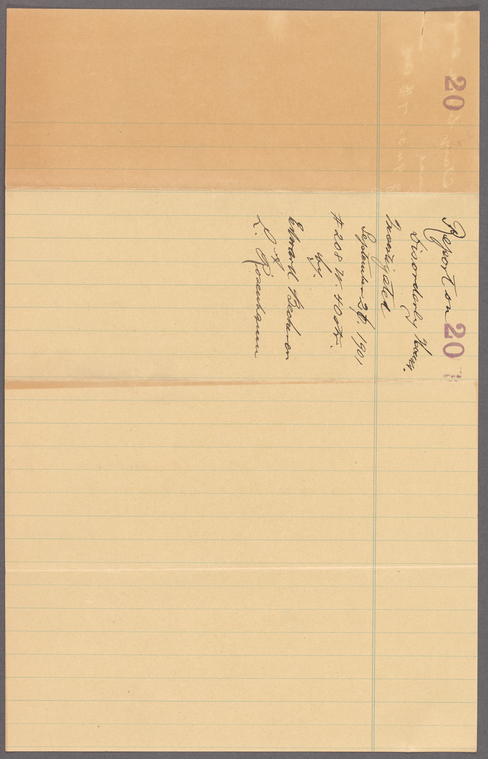 20
Report on 20
Disorderly House.
Investigated
September 26, 1901
# 208 W. 40 str.
by.
Edward
L. Rosenbaum